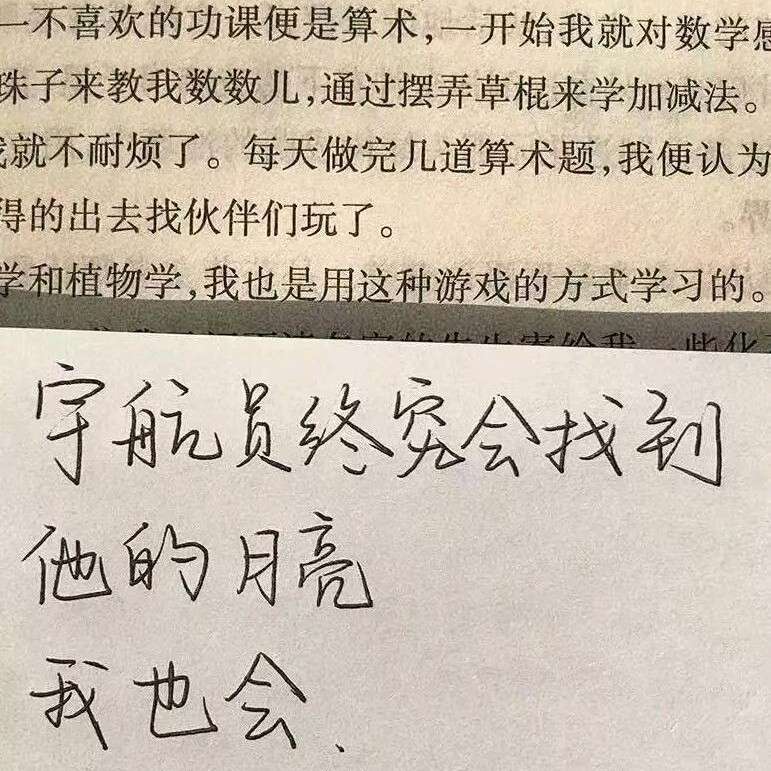 一不喜欢的功课便是算术,一开始我就对数学感
珠子来教我数数儿,通过摆弄草棍来学加减法。
就不耐烦了。每天做完几道算术题,我便认为
得的出去找伙伴们玩了。
学和植物学,我也是用这种游戏的方式学习的。
宇航员终究会找到
他的月亮
我也会、